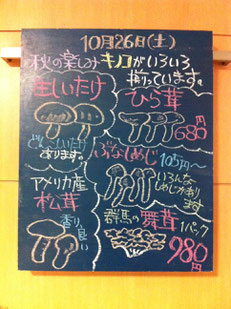 10月26日(土)
秋の楽しみ キノコがいろいろ
揃っています。
生しいたけ
どんこしいたけ
あります。
ひら茸
680円
ぶなしめじ
105円〜
いろんな
しめじがあり
ます
アメリカ産
松茸
香り良い
群馬の舞茸 1パック
980円